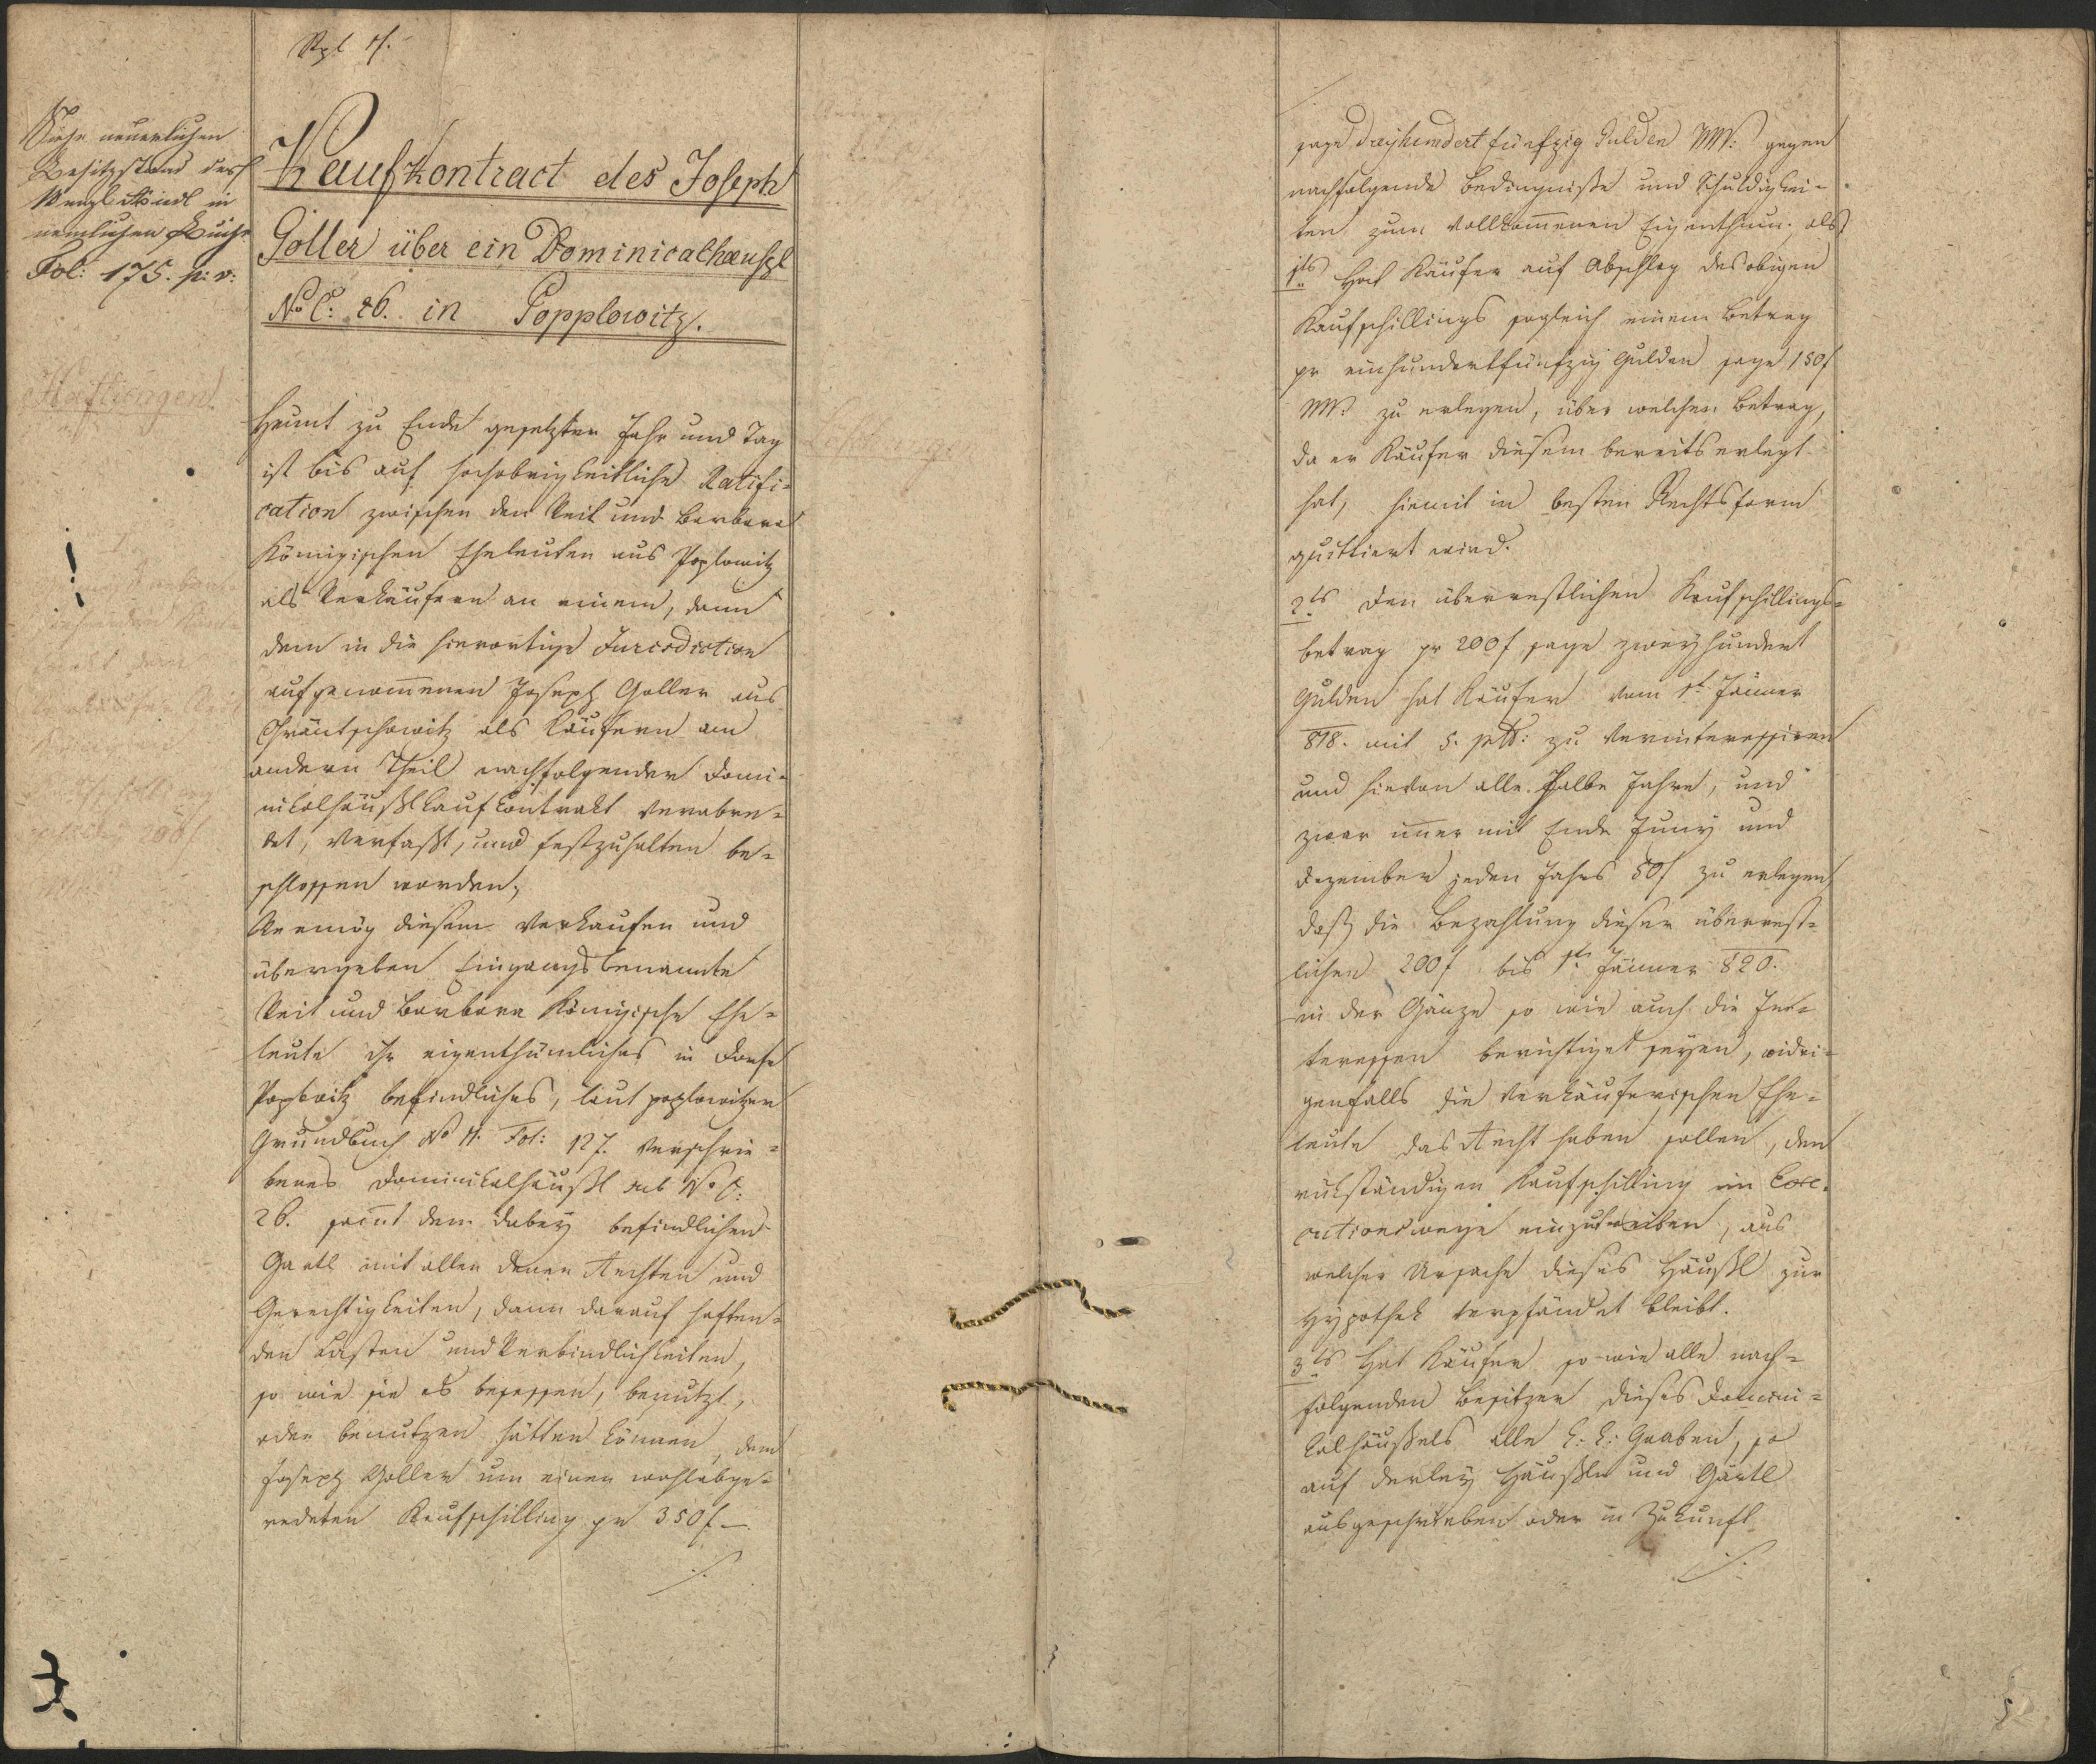 Siehe neuerlichen
Besitzstand des
Wenzl Riedl in
nemlichen Buche
Fol: 175. p: v:
Haftungen
Kaufkontract des Joseph
Goller über ein Dominicalhæuszl
No C: 26. in Popplowitz.
Heunt zu Ende gesetzten Jahr und Tag
ist bis auf hochobrigkeitliche Ratifi-
cation zwischen den Veit und Barbara
Königischen Eheleuten aus Poplowitz
als Verkäufern an einem, dann
dem in die hierortige Jurisdiction
aufgenommenen Joseph Goller aus
als Käufern am
andern Theil nachfolgender Domi-
nikalhäußlkaufkontrakt verabre-
det, verfaßt, und festzuhalten be-
schlossen worden;
Vermög diesem verkaufen und
übergeben Eingangsbenannte
Veit und Barbara Königische Ehe-
leute ihr eigenthümliches in Dorfe
Poplowitz befindliches, laut poplowitzer
Grundbuch No Fol: 127. verschrie-
benes Dominikalhäußl sub No C:
26. sammt dem dabey befindlichen
Gartl mit allen denen Rechten und
Gerechtigkeiten, dann darauf haften-
den Lasten und Verbindlichkeiten,
so wie sie es besessen, benutzt,
oder benutzen hätten können, dem
Joseph Goller um einen wohlabge-
redeten Kaufschilling pr 350 f —
./.
Löschungen
sage dreyhundert fünfzig Gulden WW: gegen
nachfolgende Bedingnisse und Schuldigkei-
ten zum vollkommenen Eigenthum; als
1tens Hat Käufer auf Abschlag des obigen
Kaufschillings sogleich einem Betrag
pr einhundertfünfzig Gulden sage 150 f
WW: zu erlegen, über welchen Betrag,
da er Käufer diesem bereits erlegt
hat, hiemit in besten Rechtsform
quittiert wird.
2tens Den überrestlichen Kaufschillings-
betrag pr 200 f sage zweyhundert
Gulden hat Käufer vom 1t Jänner
818. mit 5. pctt: zu verinteressiren
und hievon alle halbe Jahre, und
zwar immer mit Ende Juny und
Dezember jeden Jahrs 50 f zu erlegen,
daß die Bezahlung dieser überrest-
lichen 200 f bis 1t Jänner 820.
in der Gänze so wie auch die In-
teressen berichtiget seyen, widri-
genfalls die verkäuferischen Ehe-
leute das Recht haben sollen, den
rükständigen Kaufschilling im Exe-
cutionswege einzutreiben, aus
welcher Ursache dieses Häußl zur
Hypothek verpfändet bleibt.
3tens Hat Käufer so wie alle nach-
folgenden Besitzer dieses Domini-
kalhäußels alle k: k: Gaaben, so
auf derley Häußln und Gärtl
ausgeschrieben oder in Zukunft
./.